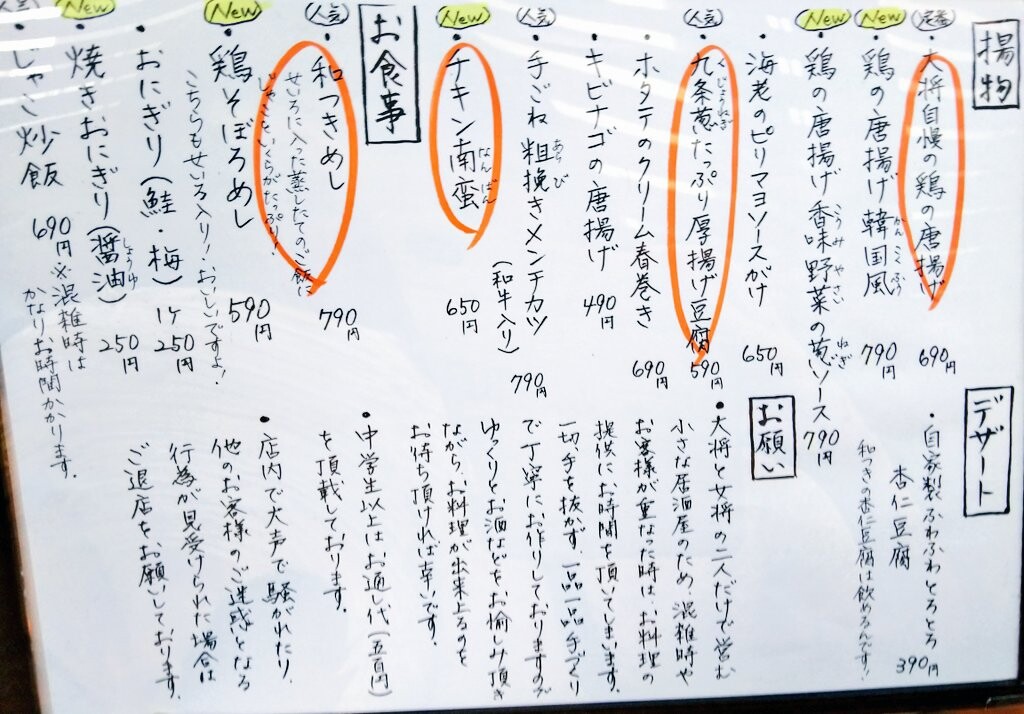 揚物
定番
・大将自慢の鶏の唐揚げ 690円
New
・鶏の唐揚げ韓国風 790円
かんこくふう
New
・鶏の唐揚げ香味野菜の葱ソース 790円
こうみやさい
ねぎ
・海老のピリマヨソースがけ 650円
人気
・九条葱たっぷり厚揚げ豆腐 590円
くじょうねぎ
・ホタテのクリーム春巻き 690円
・キビナゴの唐揚げ 490円
人気
・手ごね粗挽きメンチカツ
あらび
(和牛入り) 790円
New
・チキン南蛮 650円
なんばん
お食事
人気
・和つきめし 790円
せいろに入った蒸したてのご飯に
じゃこといくらがたっぷり!
New
・鶏そぼろめし 590円
こちらもせいろ入り!おいしいですよ!
・おにぎり(鮭・梅) 1ヶ 250円
New
・焼きおにぎり(醤油) 250円
しょうゆ
人気
・じゃこ炒飯 690円
※混雑時は
かなりお時間かかります。
デザート
・自家製ふわふわとろとろ
杏仁豆腐 390円
和つきの杏仁豆腐は飲めるんです!
お願い
・大将と女将の二人だけで営む
小さな居酒屋のため、混雑時や
お客様が重なった時は、お料理の
提供にお時間を頂いてしまいます。
一切、手を抜かず、一品一品手づくり
で丁寧にお作りしておりますので
ゆっくりとお酒などをお愉しみ頂き
ながら、お料理が出来上るのを
お待ち頂ければ幸いです。
・中学生以上はお通し代(五百円)
を頂戴しております。
・店内で大声で騒がれたり、
他のお客様のご迷惑となる
行為が見受けられた場合は
ご退店をお願いしております。